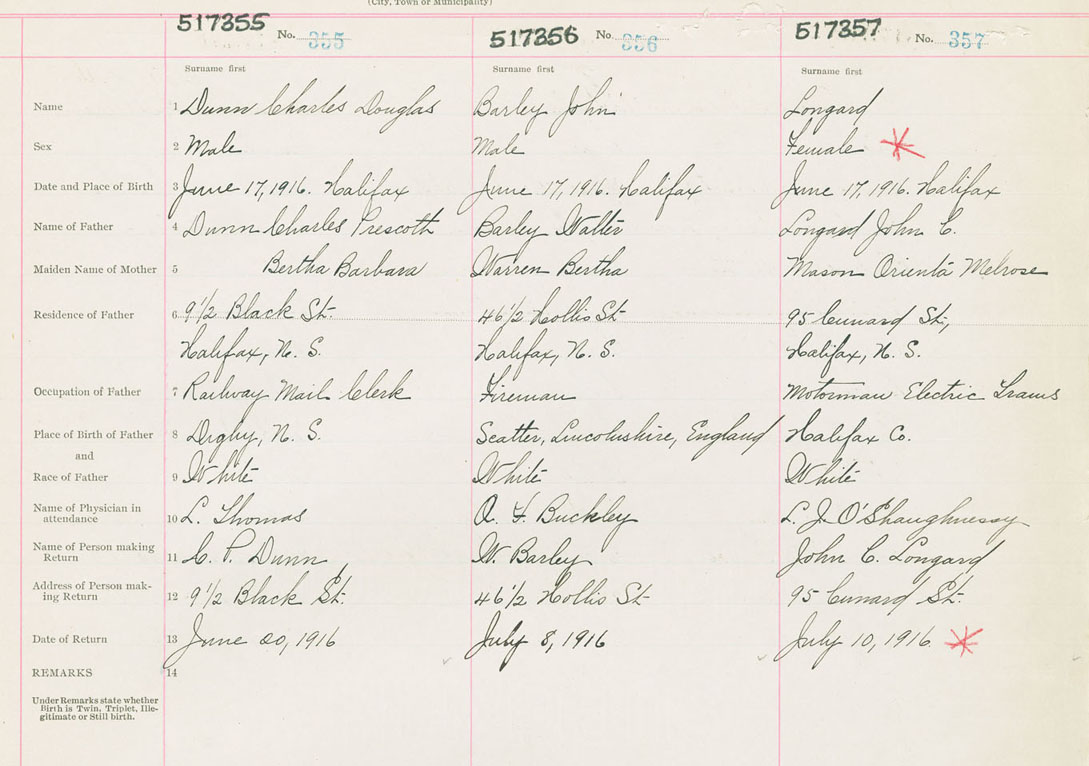 (City, Town or Municipality)
517355 No. 355 517356 No. 356 517357 No. 357
Surname first Surname first Surname first
Name 1 Dunn Charles Douglas Barley John Longard
Sex 2 Male Male Female *
Date and Place of Birth 3 June 17, 1916. Halifax June 17, 1916. Halifax June 17, 1916. Halifax
Name of Father 4 Dunn Charles Prescott Barley Walter Longard John C.
Maiden Name of Mother 5 Bertha Barbara Warren Bertha Mason Orienta Melrose
Residence of Father 6 9 1/2 Black St. 46 1/2 Hollis St 95 Cunard St.,
Halifax, N. S. Halifax, N. S. Halifax, N. S.
Occupation of Father 7 Railway Mail Clerk Fireman Motorman Electric Trams
Place of Birth of Father 8 Digby, N. S. Scatter, Lincolnshire, England Halifax Co.
and
Race of Father 9 White White White
Name of Physician in attendance 10 L. Thomas A. F. Buckley L. J. O'Shaughnessy
Name of Person making Return 11 C. P. Dunn W. Barley John C. Longard
Address of Person mak-ing Return 12 9 1/2 Black St. 46 1/2 Hollis St 95 Cunard St.
Date of Return 13 June 20, 1916 July 8, 1916 July 10, 1916 *
REMARKS 14
Under Remarks state whether
Birth is Twin, Triplet, Ille-
gitimate or Still birth.